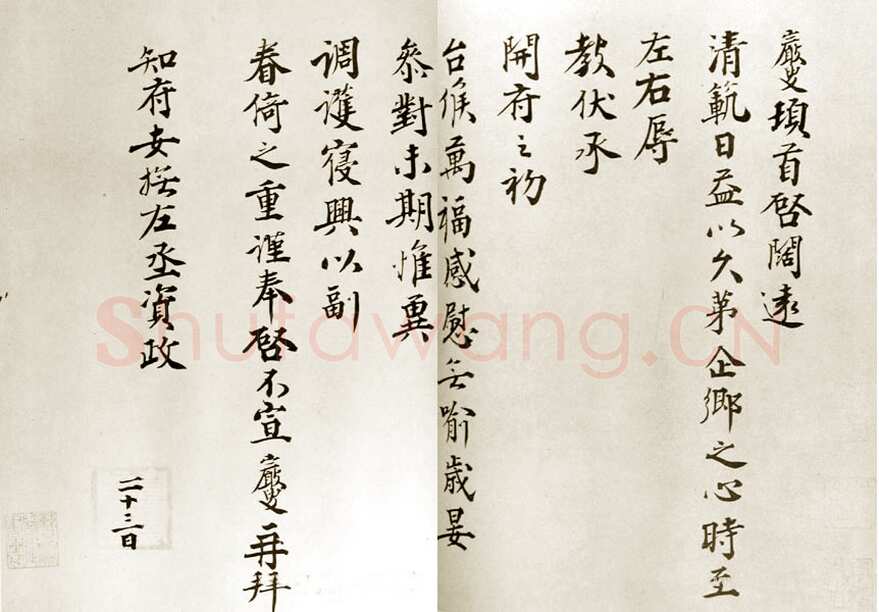 巖叟頓首啓闊遠
清範日益以久第企鄉之心時至
左右辱
教伏承
開府之初
台候萬福感慰无喻歲晏
叅對未期惟冀
調護寢興以副
眷倚之重謹奉啓不宣巖叟再拜
知府安撫左丞資政
二十三日
Shufawang.CN